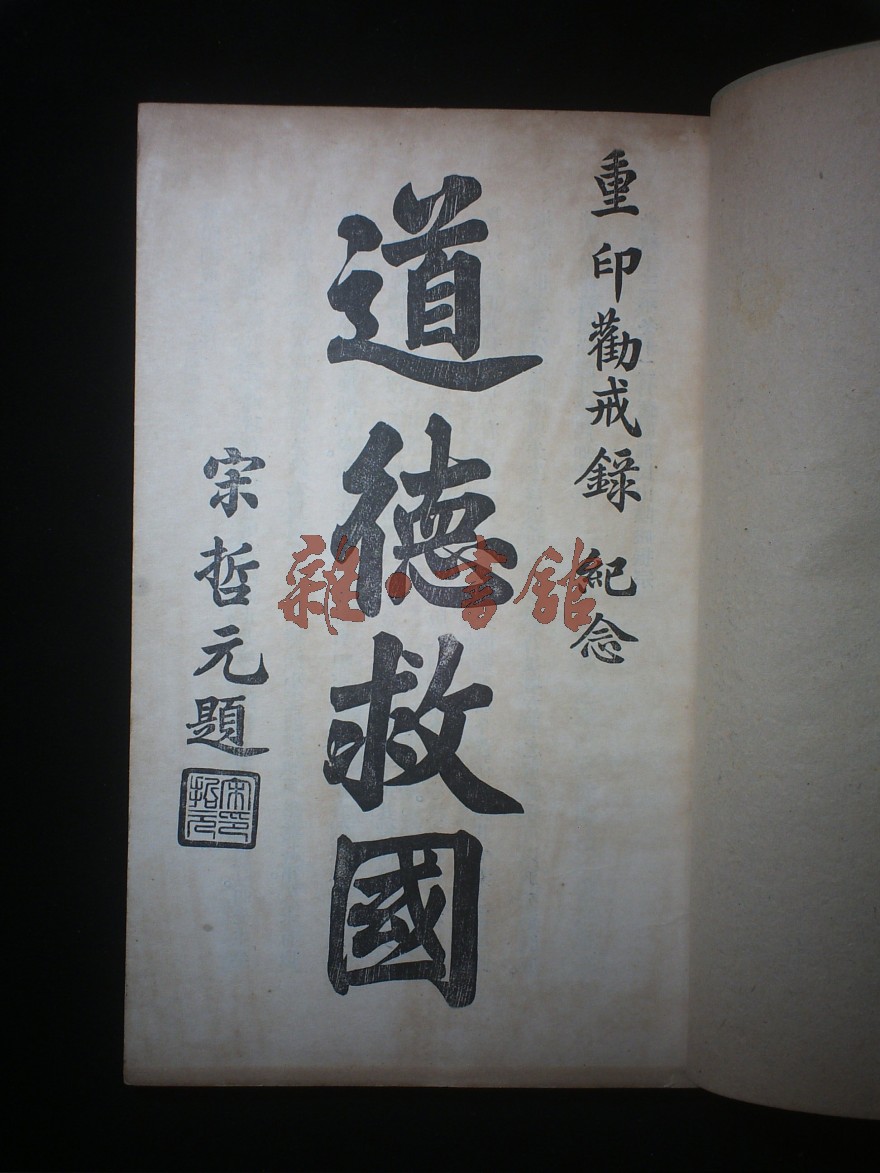 重印勸戒錄 紀念
道德救國
宋哲元題
宋哲元印
雜·書舘